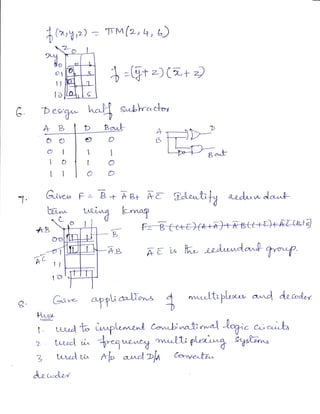 f(x,y,z) = πM(2, 4, 6)
z 0 1
xy
00
01
f = (ȳ+z)(x̄+z)
11
10
6. Design half Subtractor
A B D Bout
0 0 0 0
0 1 1 1
1 0 1 0
1 1 0 0
A D
B
Bout
7. Given F = B̄ + ĀB + ĀC̄ Identify redundant
term using kmap
C 0 1
AB
00 B̄
01 ĀB
ĀC̄ 11
10
ĀC̄ is the redundant group.
8. Give applications of multiplexer and decoder
Mux
1. used to implement Combinational logic Circuits
2. used in frequency multiplexing Systems
3 used in A/D and D/A Converter
decoder